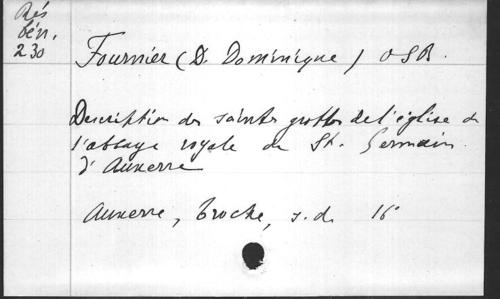 Rés
bén.
230
Fournier (D. Dominique) OSB.
Description des saintes grottes de l'église de
l'abbaye royale de St. Germain
d'Auxerre
Auxerre, Troche, s.d. 16°